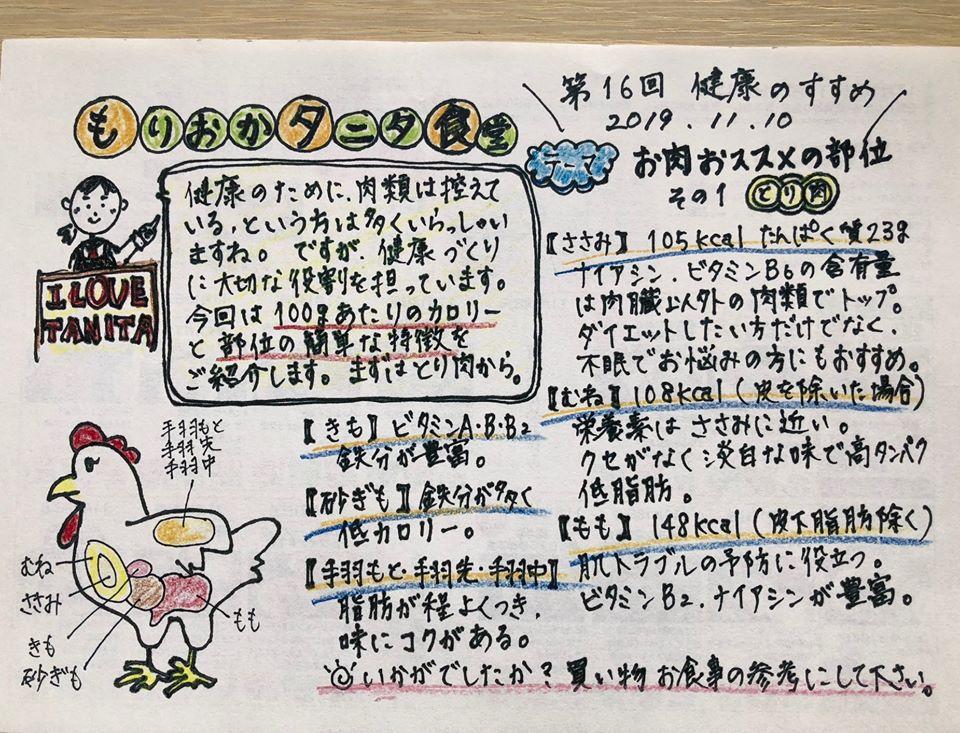 第16回 健康のすすめ
2019.11.10
もりおかタニタ食堂
テーマ
お肉おススメの部位
その1 とり肉
健康のために、肉類は控えて
いる、という方は多くいらっしゃい
ますね。ですが、健康づくり
に大切な役割を担っています。
今回は100gあたりのカロリー
と部位の簡単な特徴を
ご紹介します。まずはとり肉から。
I LOVE
TANITA
【ささみ】105kcal たんぱく質23g
ナイアシン、ビタミンB6の含有量
は内臓以外の肉類でトップ。
ダイエットしたい方だけでなく、
不眠でお悩みの方にもおすすめ。
【むね】108kcal(皮を除いた場合)
栄養素はささみに近い。
クセがなく淡白な味で高タンパク
低脂肪。
【もも】148kcal(皮下脂肪除く)
肌トラブルの予防に役立つ。
ビタミンB2、ナイアシンが豊富。
【きも】ビタミンA・B・B2
鉄分が豊富。
【砂ぎも】鉄分が多く
低カロリー。
【手羽もと・手羽先・手羽中】
脂肪が程よくつき、
味にコクがある。
手羽もと
手羽先
手羽中
むね
ささみ
きも
砂ぎも
もも
いかがでしたか?買い物 お食事の参考にして下さい。